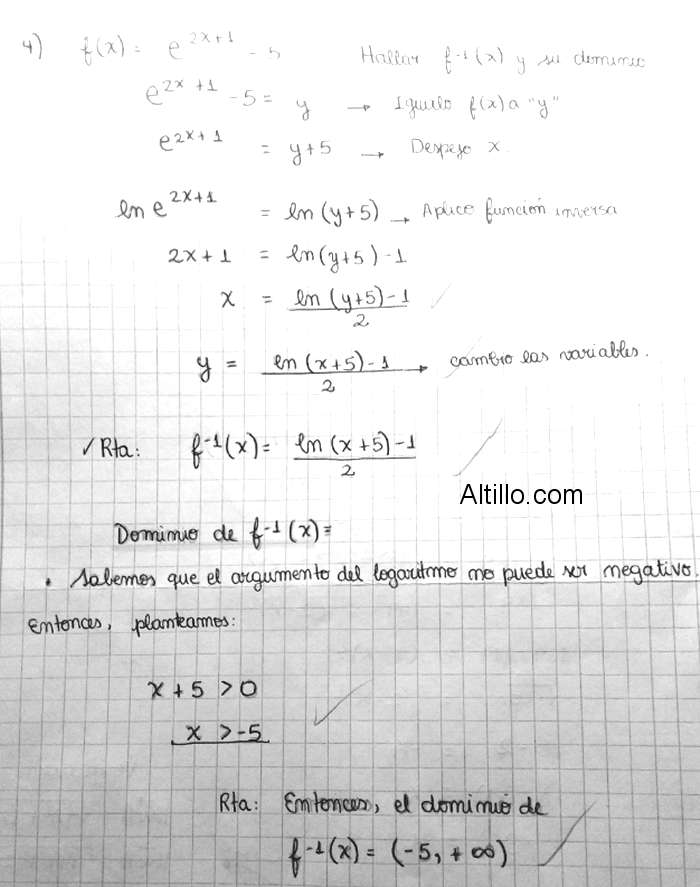 4) f(x) = e^{2x+1} - 5 Hallar f^{-1}(x) y su dominio
e^{2x+1} - 5 = y → Igualo f(x) a "y"
e^{2x+1} = y+5 → Despejo x.
ln e^{2x+1} = ln (y+5) → Aplico función inversa
2x+1 = ln(y+5) - 1
x = ln (y+5) - 1
2
y = ln (x+5) - 1 → cambio las variables.
2
✓ Rta: f^{-1}(x) = ln (x+5) - 1
2
Altillo.com
Dominio de f^{-1}(x) =
• Sabemos que el argumento del logaritmo no puede ser negativo.
Entonces, planteamos:
x + 5 > 0
x > -5
Rta: Entonces, el dominio de
f^{-1}(x) = (-5, +∞)